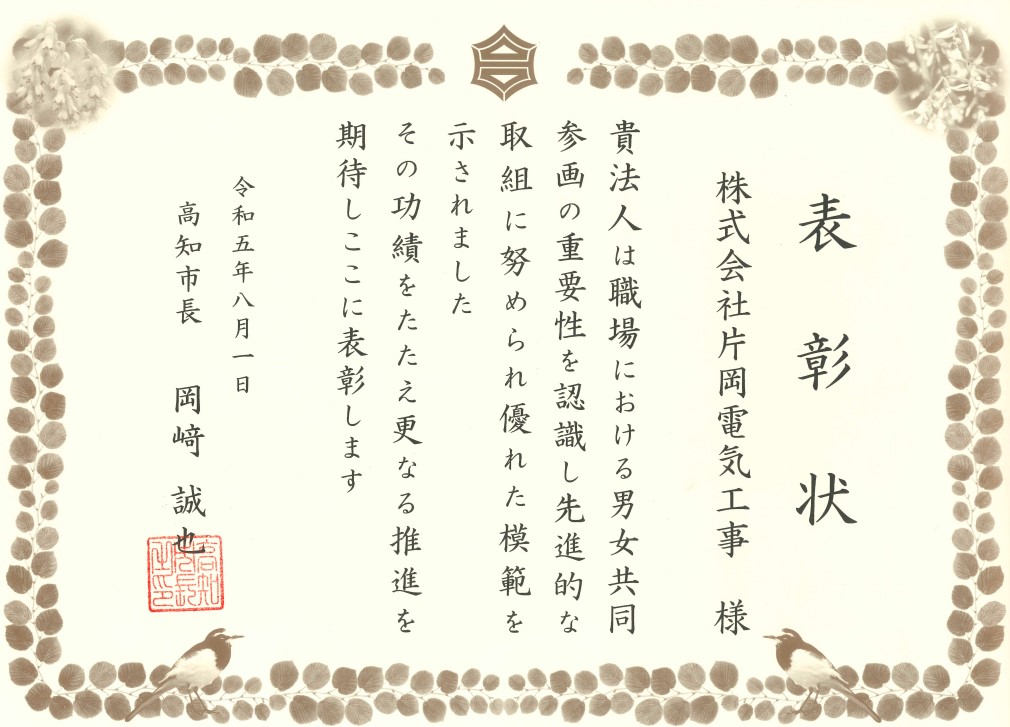 表彰状
株式会社片岡電気工事 様
貴法人は職場における男女共同
参画の重要性を認識し先進的な
取組に努められ優れた模範を
示されました
その功績をたたえ更なる推進を
期待しここに表彰します
令和五年八月一日
高知市長 岡﨑 誠也
高知市長之印